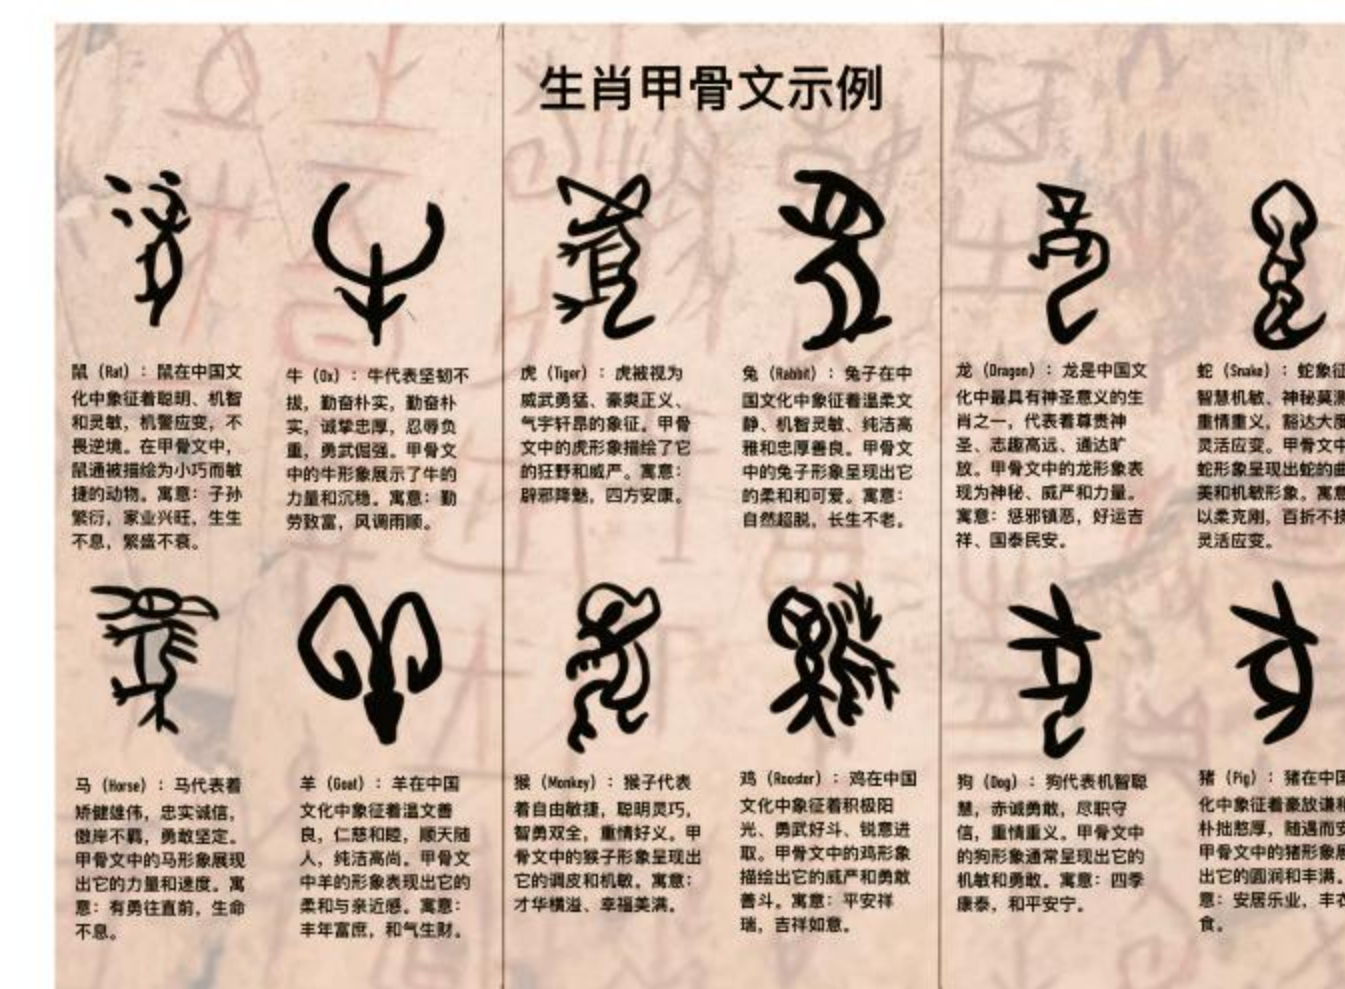 生肖甲骨文示例
鼠（Rat）：鼠在中国文
化中象征着聪明、机智
和灵敏，机警应变，不
畏逆境。在甲骨文中，
鼠通被描绘为小巧而敏
捷的动物。寓意：子孙
繁衍，家业兴旺，生生
不息，繁盛不衰。
牛（Ox）：牛代表坚韧不
拔，勤奋朴实，勤奋朴
实，诚挚忠厚，忍辱负
重，勇武倔强。甲骨文
中的牛形象展示了牛的
力量和沉稳。寓意：勤
劳致富，风调雨顺。
虎（Tiger）：虎被视为
威武勇猛、豪爽正义、
气宇轩昂的象征。甲骨
文中的虎形象描绘了它
的狂野和威严。寓意：
辟邪降魅，四方安康。
兔（Rabbit）：兔子在中
国文化中象征着温柔文
静、机智灵敏、纯洁高
雅和忠厚善良。甲骨文
中的兔子形象呈现出它
的柔和和可爱。寓意：
自然超脱，长生不老。
龙（Dragon）：龙是中国文
化中最具有神圣意义的生
肖之一，代表着尊贵神
圣、志趣高远、通达旷
放。甲骨文中的龙形象表
现为神秘、威严和力量。
寓意：惩邪镇恶，好运吉
祥、国泰民安。
蛇（Snake）：蛇象征
智慧机敏、神秘莫测
重情重义，豁达大度
灵活应变。甲骨文中
蛇形象呈现出蛇的曲
美和机敏形象。寓意
以柔克刚，百折不挠
灵活应变。
马（Horse）：马代表着
矫健雄伟，忠实诚信，
傲岸不羁，勇敢坚定。
甲骨文中的马形象展现
出它的力量和速度。寓
意：有勇往直前，生命
不息。
羊（Goat）：羊在中国
文化中象征着温文善
良，仁慈和睦，顺天随
人，纯洁高尚。甲骨文
中羊的形象表现出它的
柔和与亲近感。寓意：
丰年富庶，和气生财。
猴（Monkey）：猴子代表
着自由敏捷，聪明灵巧，
智勇双全，重情好义。甲
骨文中的猴子形象呈现出
它的调皮和机敏。寓意：
才华横溢、幸福美满。
鸡（Rooster）：鸡在中国
文化中象征着积极阳
光、勇武好斗、锐意进
取。甲骨文中的鸡形象
描绘出它的威严和勇敢
善斗。寓意：平安祥
瑞，吉祥如意。
狗（Dog）：狗代表机智聪
慧，赤诚勇敢，尽职守
信，重情重义。甲骨文中
的狗形象通常呈现出它的
机敏和勇敢。寓意：四季
康泰，和平安宁。
猪（Pig）：猪在中国
化中象征着豪放谦和
朴拙憨厚，随遇而安
甲骨文中的猪形象展
出它的圆润和丰满。
意：安居乐业，丰衣
食。